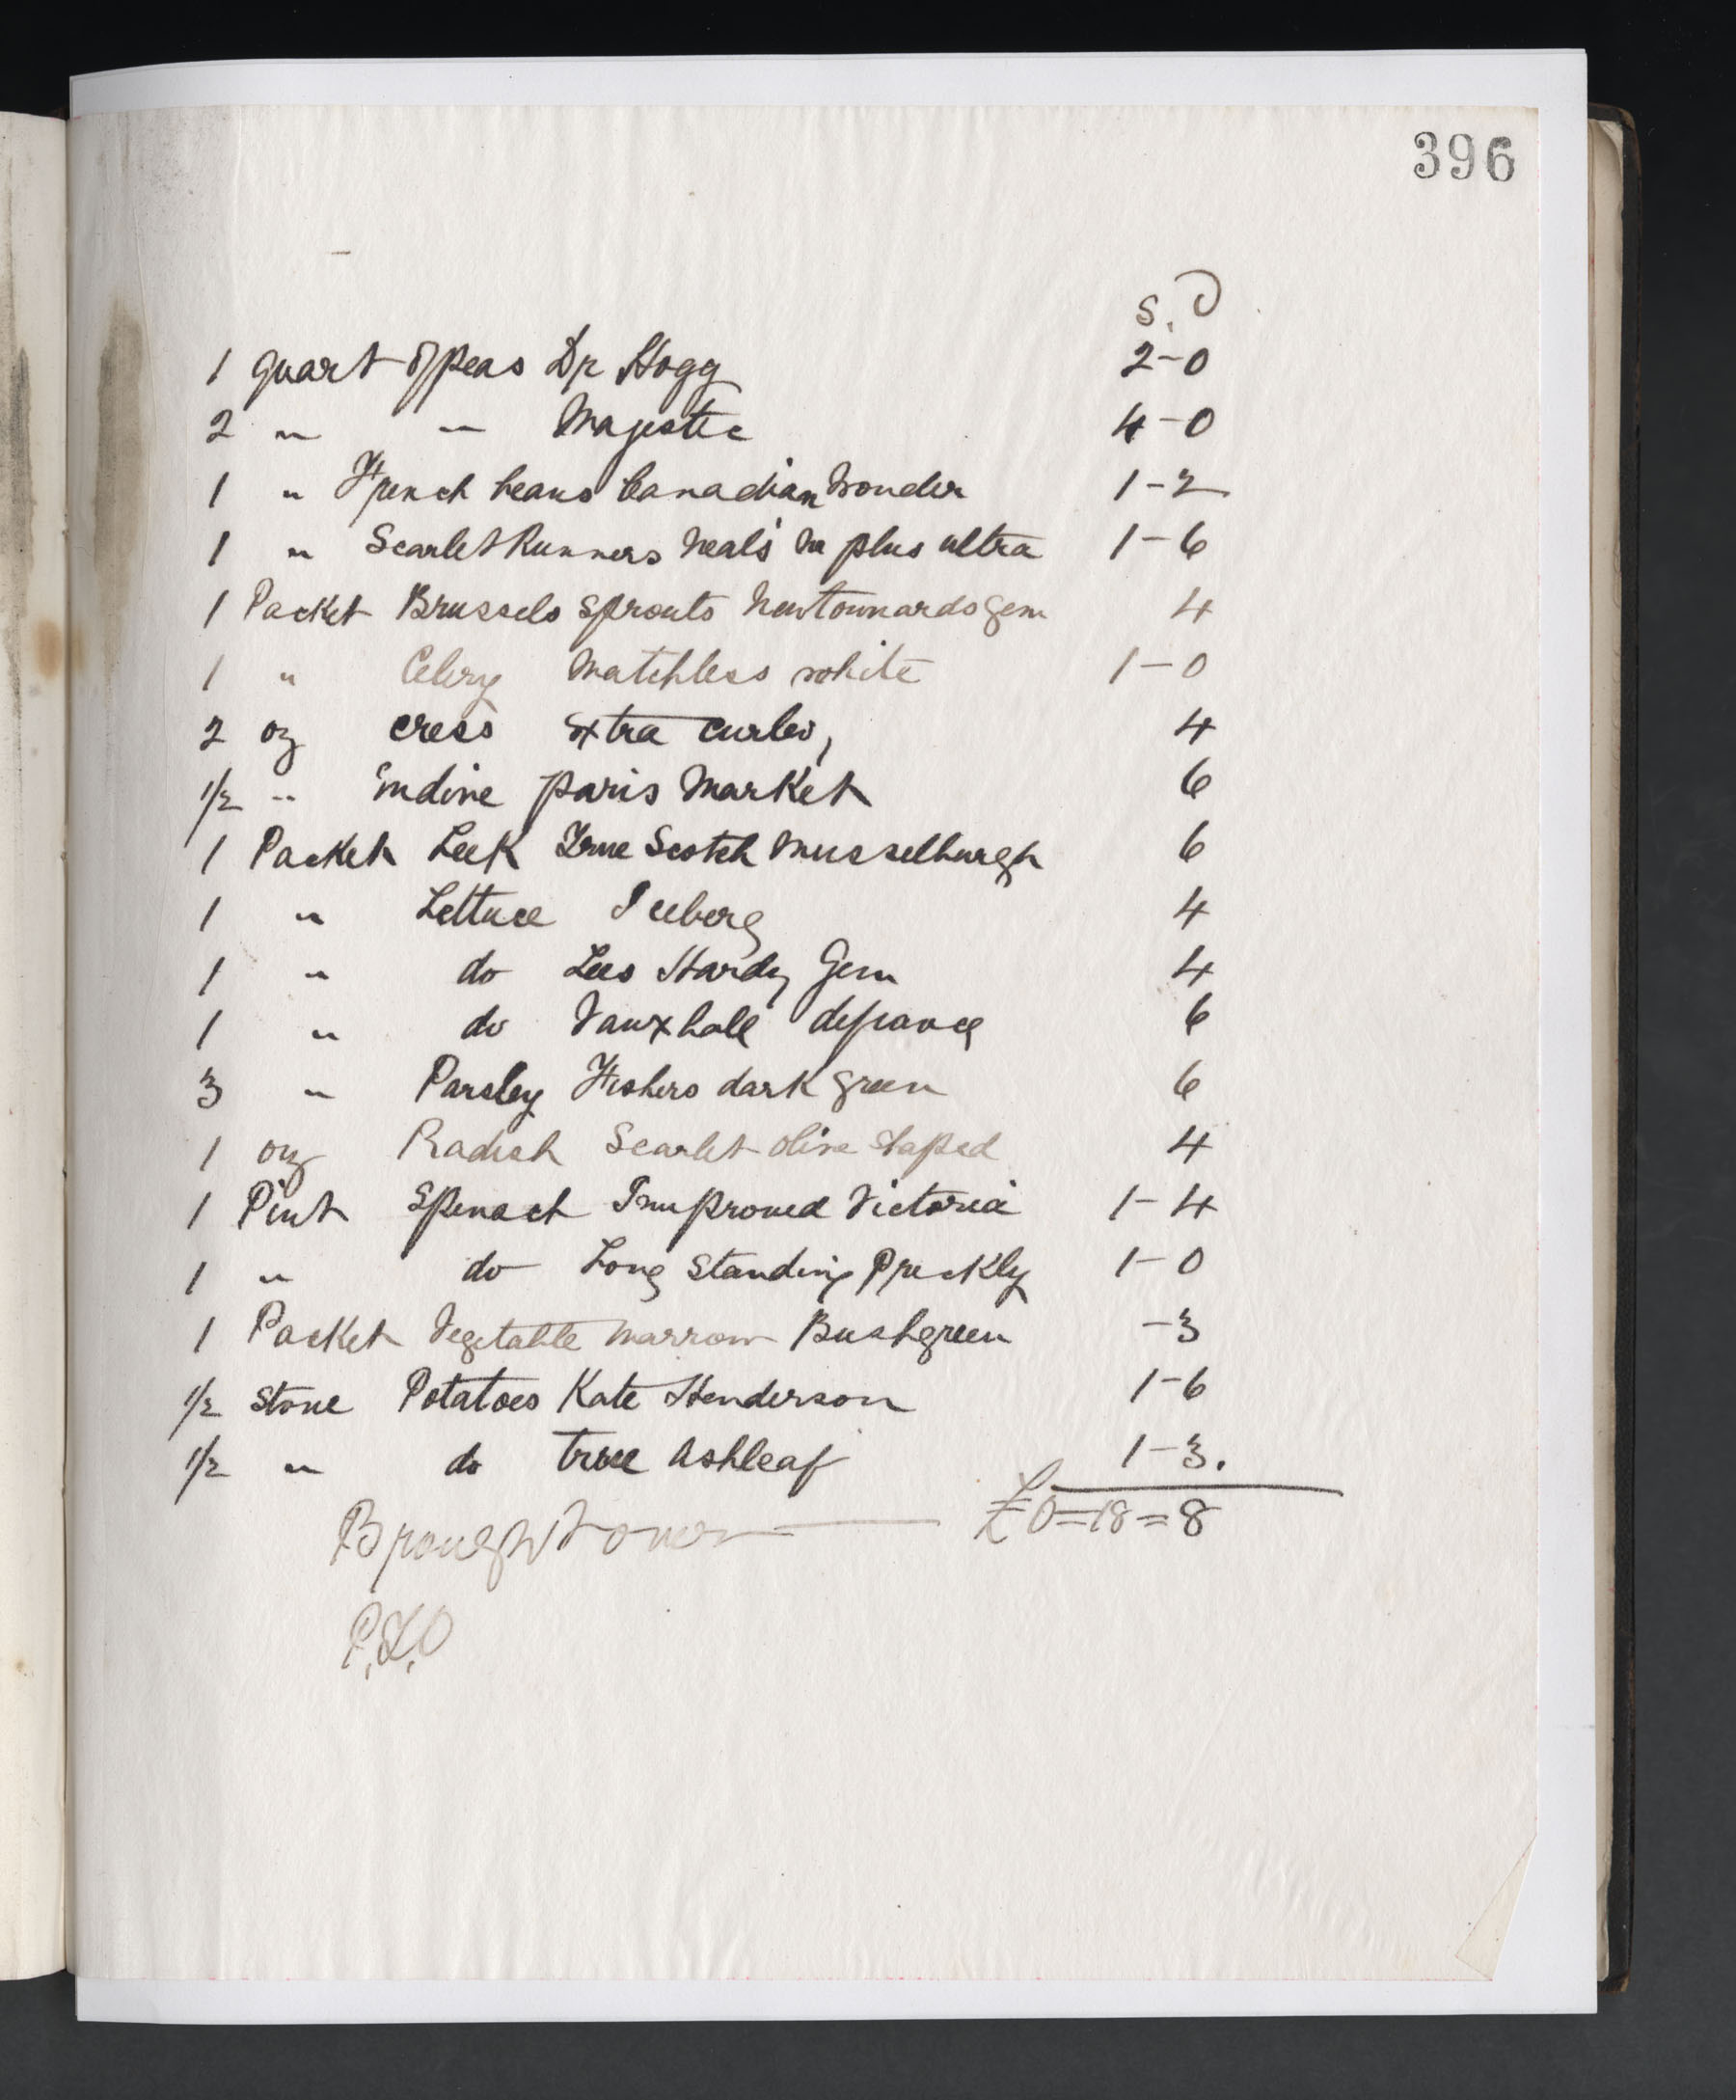 396
s. d
1 quart of peas Dr Hogg 2-0
2 " " Majestic 4-0
1 " French beans Canadian Wonder 1-2
1 " Scarlet Runners Neal's Ne plus ultra 1-6
1 Packet Brussels Sprouts Newtownards Gem 4
1 " Celery Matchless white 1-0
2 oz cress Extra curled, 4
1/2 " Endive Paris Market 6
1 Packet Leek True Scotch Musselburgh 6
1 " Lettuce Iceberg 4
1 " do Lees Hardy Gem 4
1 " do Vauxhall defiance 6
3 " Parsley Fishers dark green 6
1 oz Radish Scarlet olive shaped 4
1 Pint Spinach Improved Victoria 1-4
1 " do Long Standing Prickly 1-0
1 Packet Vegetable marrow Bush green -3
1/2 Stone Potatoes Kate Henderson 1-6
1/2 " do true Ashleaf 1-3.
Brought over — £0=18=8
P.T.O